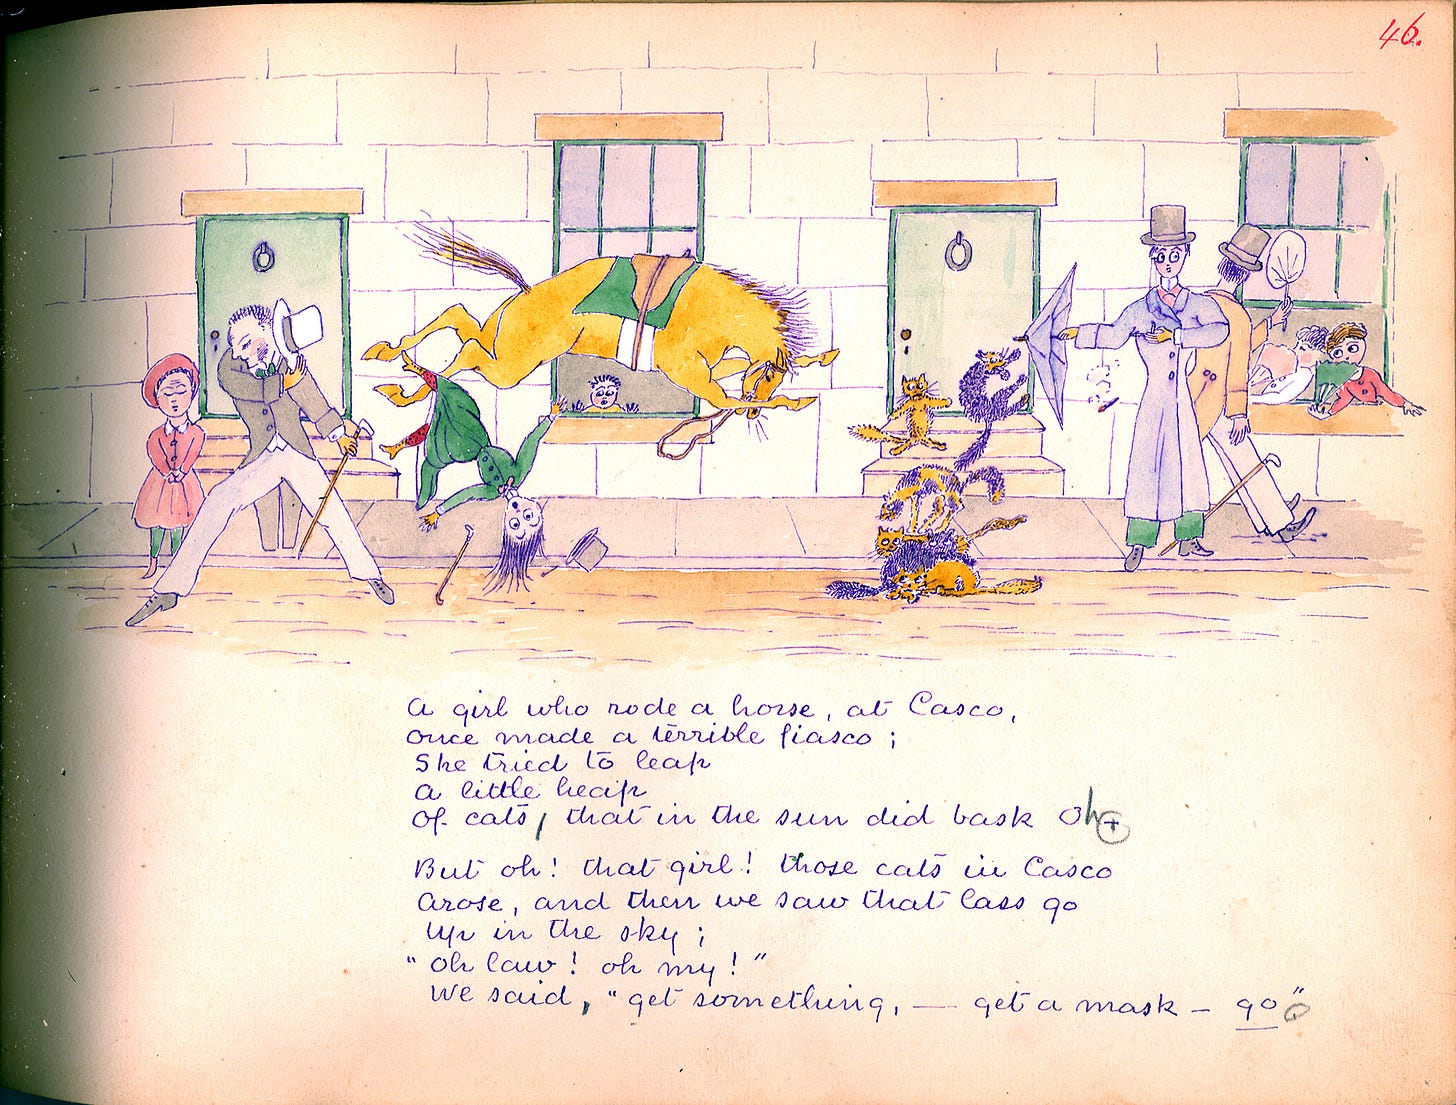 46.
A girl who rode a horse, at Casco,
once made a terrible fiasco;
She tried to leap
a little heap
of cats, that in the sun did bask Oh
But oh! that girl! those cats in Casco
arose, and then we saw that lass go
up in the sky;
"Oh law! oh my!"
We said, "get something, — get a mask — go"